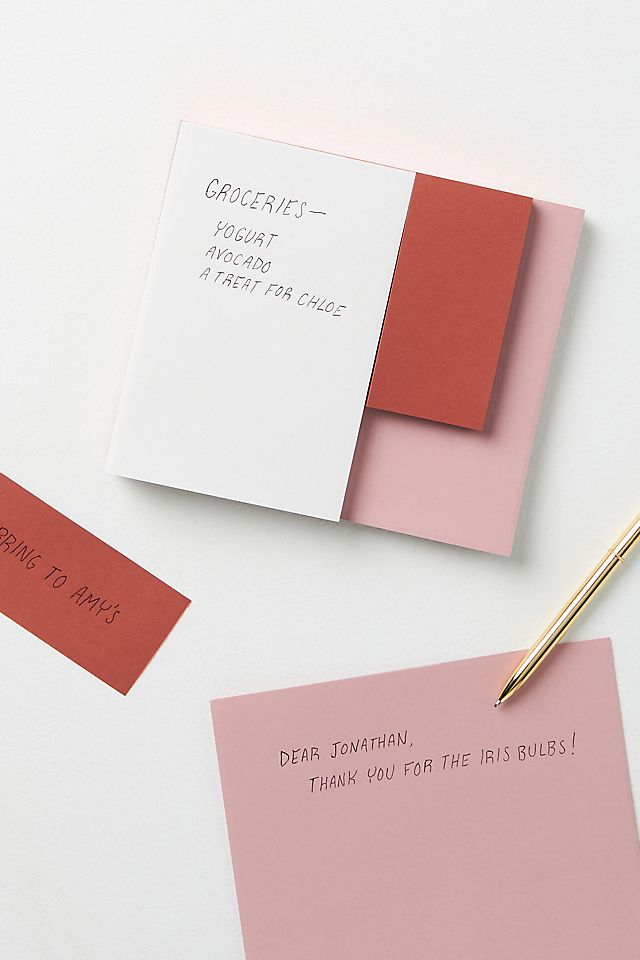 GROCERIES—
YOGURT
AVOCADO
A TREAT FOR CHLOE
BRING TO AMY'S
DEAR JONATHAN,
THANK YOU FOR THE IRIS BULBS!